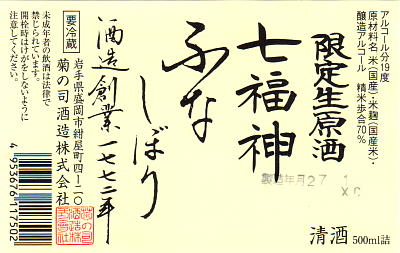 アルコール分19度
原材料名 米(国産)・米麹(国産米)・
醸造アルコール 精米歩合70%
限定生原酒
七福神
ふな
しぼり
製造年月27.1
清酒
500ml詰
酒造創業一七七二年
要冷蔵
岩手県盛岡市紺屋町四-二〇
菊の司酒造株式会社
未成年者の飲酒は法律で
禁じられています。
開栓時はけがをしないように
注意してください。
4 953676 117502